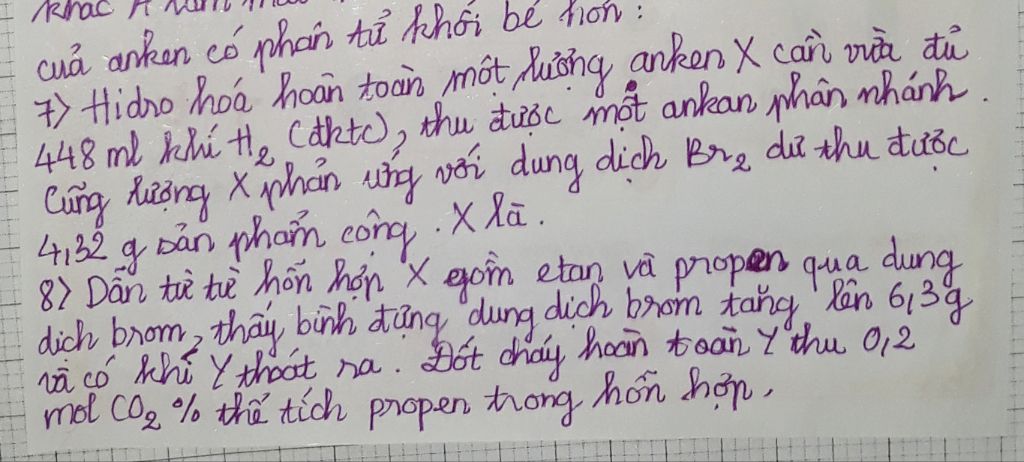 khác A
của anken có phân tử khối bé hơn :
7> Hidro hoá hoàn toàn một lượng anken X cần vừa đủ
448 ml khí H₂ (đktc), thu được một ankan phân nhánh.
Cũng lượng X phản ứng với dung dịch Br₂ dư thu được
4,32 g sản phẩm cộng. X là.
8> Dẫn từ từ hỗn hợp X gồm etan và propen qua dung
dịch brom, thấy bình đựng dung dịch brom tăng lên 6,3g
và có khí Y thoát ra. Đốt cháy hoàn toàn Y thu 0,2
mol CO₂ % thể tích propen trong hỗn hợp.